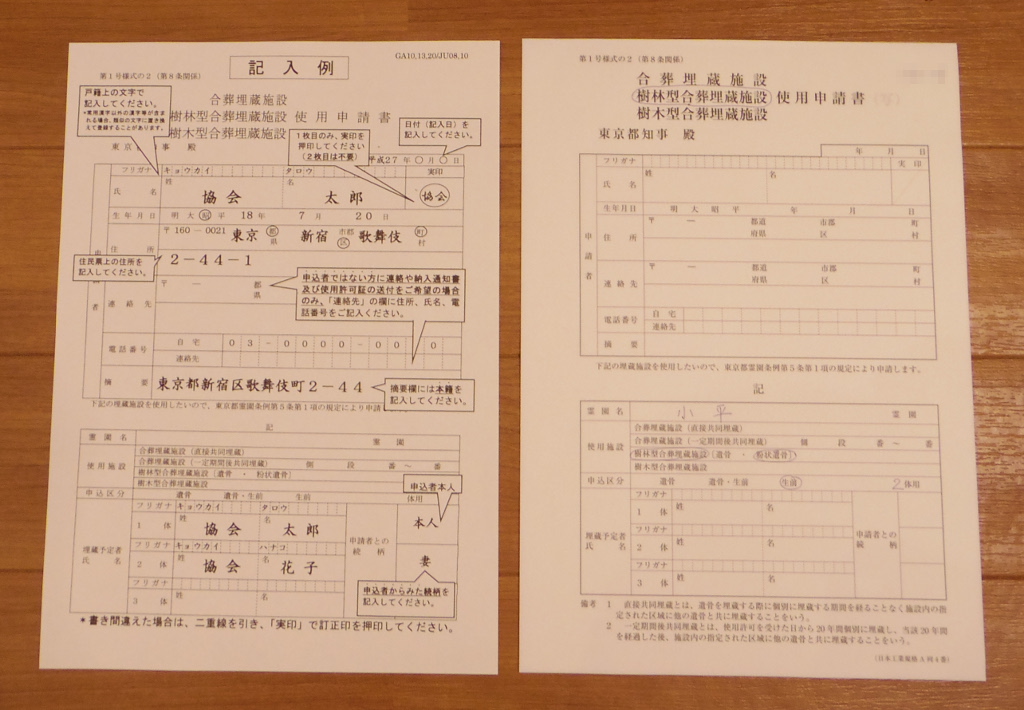 GA10,13,20/JU08,10
記入例
第1号様式の2（第8条関係）
戸籍上の文字で
記入してください。
*常用漢字以外の漢字等が含ま
れる場合、類似の文字に置き換
えて登録することがあります。
合葬埋蔵施設
樹林型合葬埋蔵施設 使用申請書
樹木型合葬埋蔵施設
東京 殿
日付（記入日）を
記入してください。
1枚目のみ、実印を
押印してください
（2枚目は不要）
平成27年〇月〇日
フリガナ キョウカイ タロウ 実印
氏名 姓 協会 名 太郎 協会
生年月日 明 大 昭 平 18年 7月 20日
住所 〒160－0021 東京 都 県 新宿 市郡 区 歌舞伎 町 村
2－44－1
住民票上の住所を
記入してください。
者
連絡先 〒 － 都 県
申込者ではない方に連絡や納入通知書
及び使用許可証の送付をご希望の場合
のみ、「連絡先」の欄に住所、氏名、電
話番号をご記入ください。
電話番号 自宅 03-0000-00 0
連絡先
摘要 東京都新宿区歌舞伎町2－44
摘要欄には本籍を
記入してください。
下記の埋蔵施設を使用したいので、東京都霊園条例第5条第1項の規定により申請
記
霊園名 霊園
使用施設 合葬埋蔵施設（直接共同埋蔵）
合葬埋蔵施設（一定期間後共同埋蔵） 側 段 番～ 番
樹林型合葬埋蔵施設（遺骨 ・ 粉状遺骨）
樹木型合葬埋蔵施設
申込区分 遺骨 遺骨・生前 生前 体用
申込者本人
埋蔵予定者
氏名
フリガナ キョウカイ タロウ
1体 姓 協会 名 太郎 申請者との続柄 本人
フリガナ キョウカイ ハナコ
2体 姓 協会 名 花子 妻
フリガナ
3体 姓 名
申込者からみた続柄を
記入してください。
*書き間違えた場合は、二重線を引き、「実印」で訂正印を押印してください。
第1号様式の2（第8条関係）
合葬埋蔵施設
樹林型合葬埋蔵施設 使用申請書
樹木型合葬埋蔵施設
東京都知事 殿
年 月 日
フリガナ 実印
氏名 姓 名
生年月日 明 大 昭 平 年 月 日
申請者
住所 〒 － 都道 府県 市郡 区 町 村
連絡先 〒 － 都道 府県 市郡 区 町 村
電話番号 自宅
連絡先
摘要
下記の埋蔵施設を使用したいので、東京都霊園条例第5条第1項の規定により申請します。
記
霊園名 小平 霊園
使用施設 合葬埋蔵施設（直接共同埋蔵）
合葬埋蔵施設（一定期間後共同埋蔵） 側 段 番～ 番
樹林型合葬埋蔵施設（遺骨 ・ 粉状遺骨）
樹木型合葬埋蔵施設
申込区分 遺骨 遺骨・生前 生前 2体用
埋蔵予定者
氏名
フリガナ
1体 姓 名 申請者との続柄
フリガナ
2体 姓 名
フリガナ
3体 姓 名
備考 1 直接共同埋蔵とは、遺骨を埋蔵する際に個別に埋蔵する期間を経ることなく施設内の指
定された区域に他の遺骨と共に埋蔵することをいう。
2 一定期間後共同埋蔵とは、使用許可を受けた日から20年間個別に埋蔵し、当該20年間
を経過した後、施設内の指定された区域に他の遺骨と共に埋蔵することをいう。
（日本工業規格A列4番）